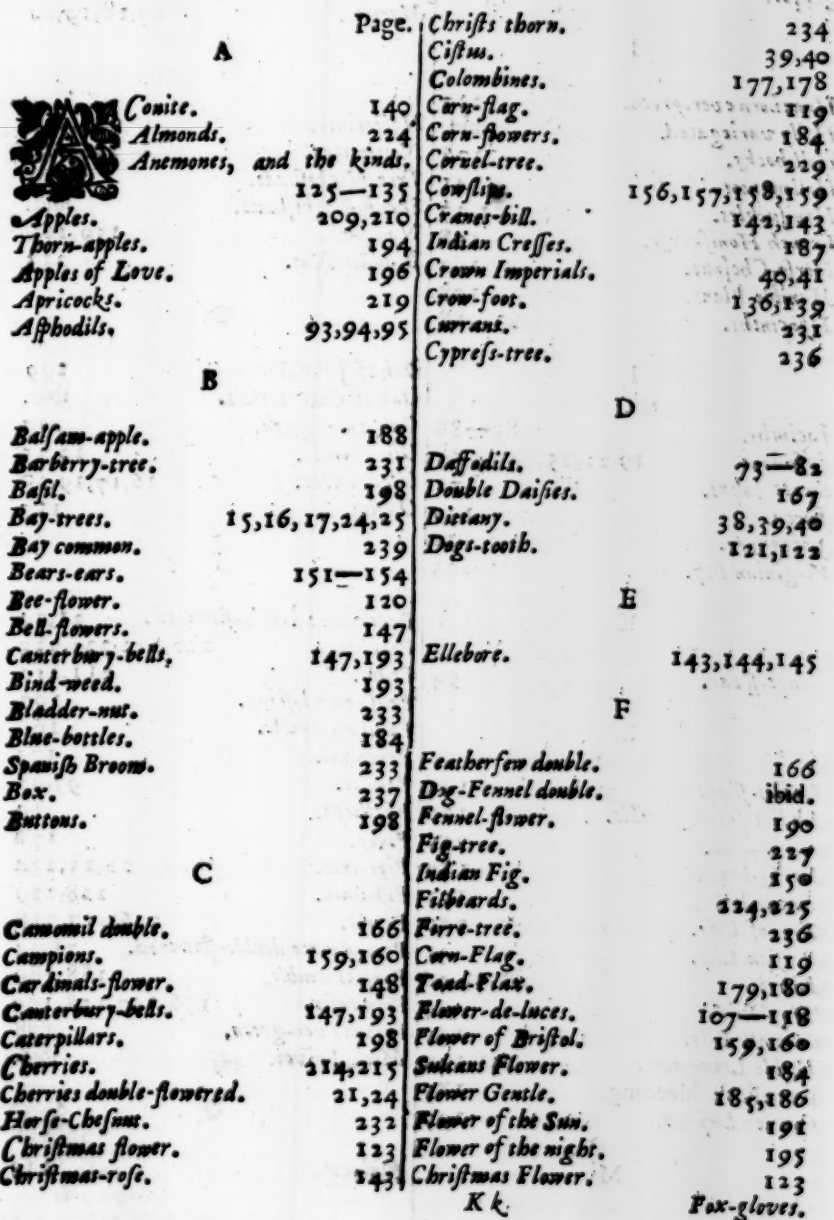 Page.
A
AConite. 140
Almonds. 224
Anemones, and the kinds.
125—135
Apples. 209,210
Thorn-apples. 194
Apples of Love. 196
Apricocks. 219
Aſphodils. 93,94,95
B
Balſam-apple. 188
Barberry-tree. 231
Baſil. 198
Bay-trees. 15,16,17,24,25
Bay common. 239
Bears-ears. 151—154
Bee-flower. 120
Bell-flowers. 147
Canterbury-bells. 147,193
Bind-weed. 193
Bladder-nut. 233
Blue-bottles. 184
Spaniſh Broom. 233
Box. 237
Buttons. 198
C
Camomil double. 166
Campions. 159,160
Cardinals-flower. 148
Canterbury-bells. 147,193
Caterpillars. 198
Cherries. 214,215
Cherries double-flowered. 21,24
Horſe-Cheſnut. 232
Chriſtmas flower. 123
Chriſtmas-roſe. 143
Chriſts thorn. 234
Ciſtus. 39,40
Colombines. 177,178
Corn-flag. 119
Corn-flowers. 184
Cornel-tree. 229
Cowſlips. 156,157,158,159
Cranes-bill. 142,143
Indian Creſſes. 187
Crown Imperials. 40,41
Crow-foot. 136,139
Currans. 231
Cypreſs-tree. 236
D
Daffodils. 73—82
Double Daiſies. 167
Dictany. 38,39,40
Dogs-tooth. 121,122
E
Ellebore. 143,144,145
F
Featherfew double. 166
Dog-Fennel double. ibid.
Fennel-flower. 190
Fig-tree. 227
Indian Fig. 150
Filbeards. 224,225
Firre-tree. 236
Corn-Flag. 119
Toad-Flax. 179,180
Flower-de-luces. 107—118
Flower of Briſtol. 159,160
Sultans Flower. 184
Flower Gentle. 185,186
Flower of the Sun. 191
Flower of the night. 195
Chriſtmas Flower. 123
K k
Fox-gloves.